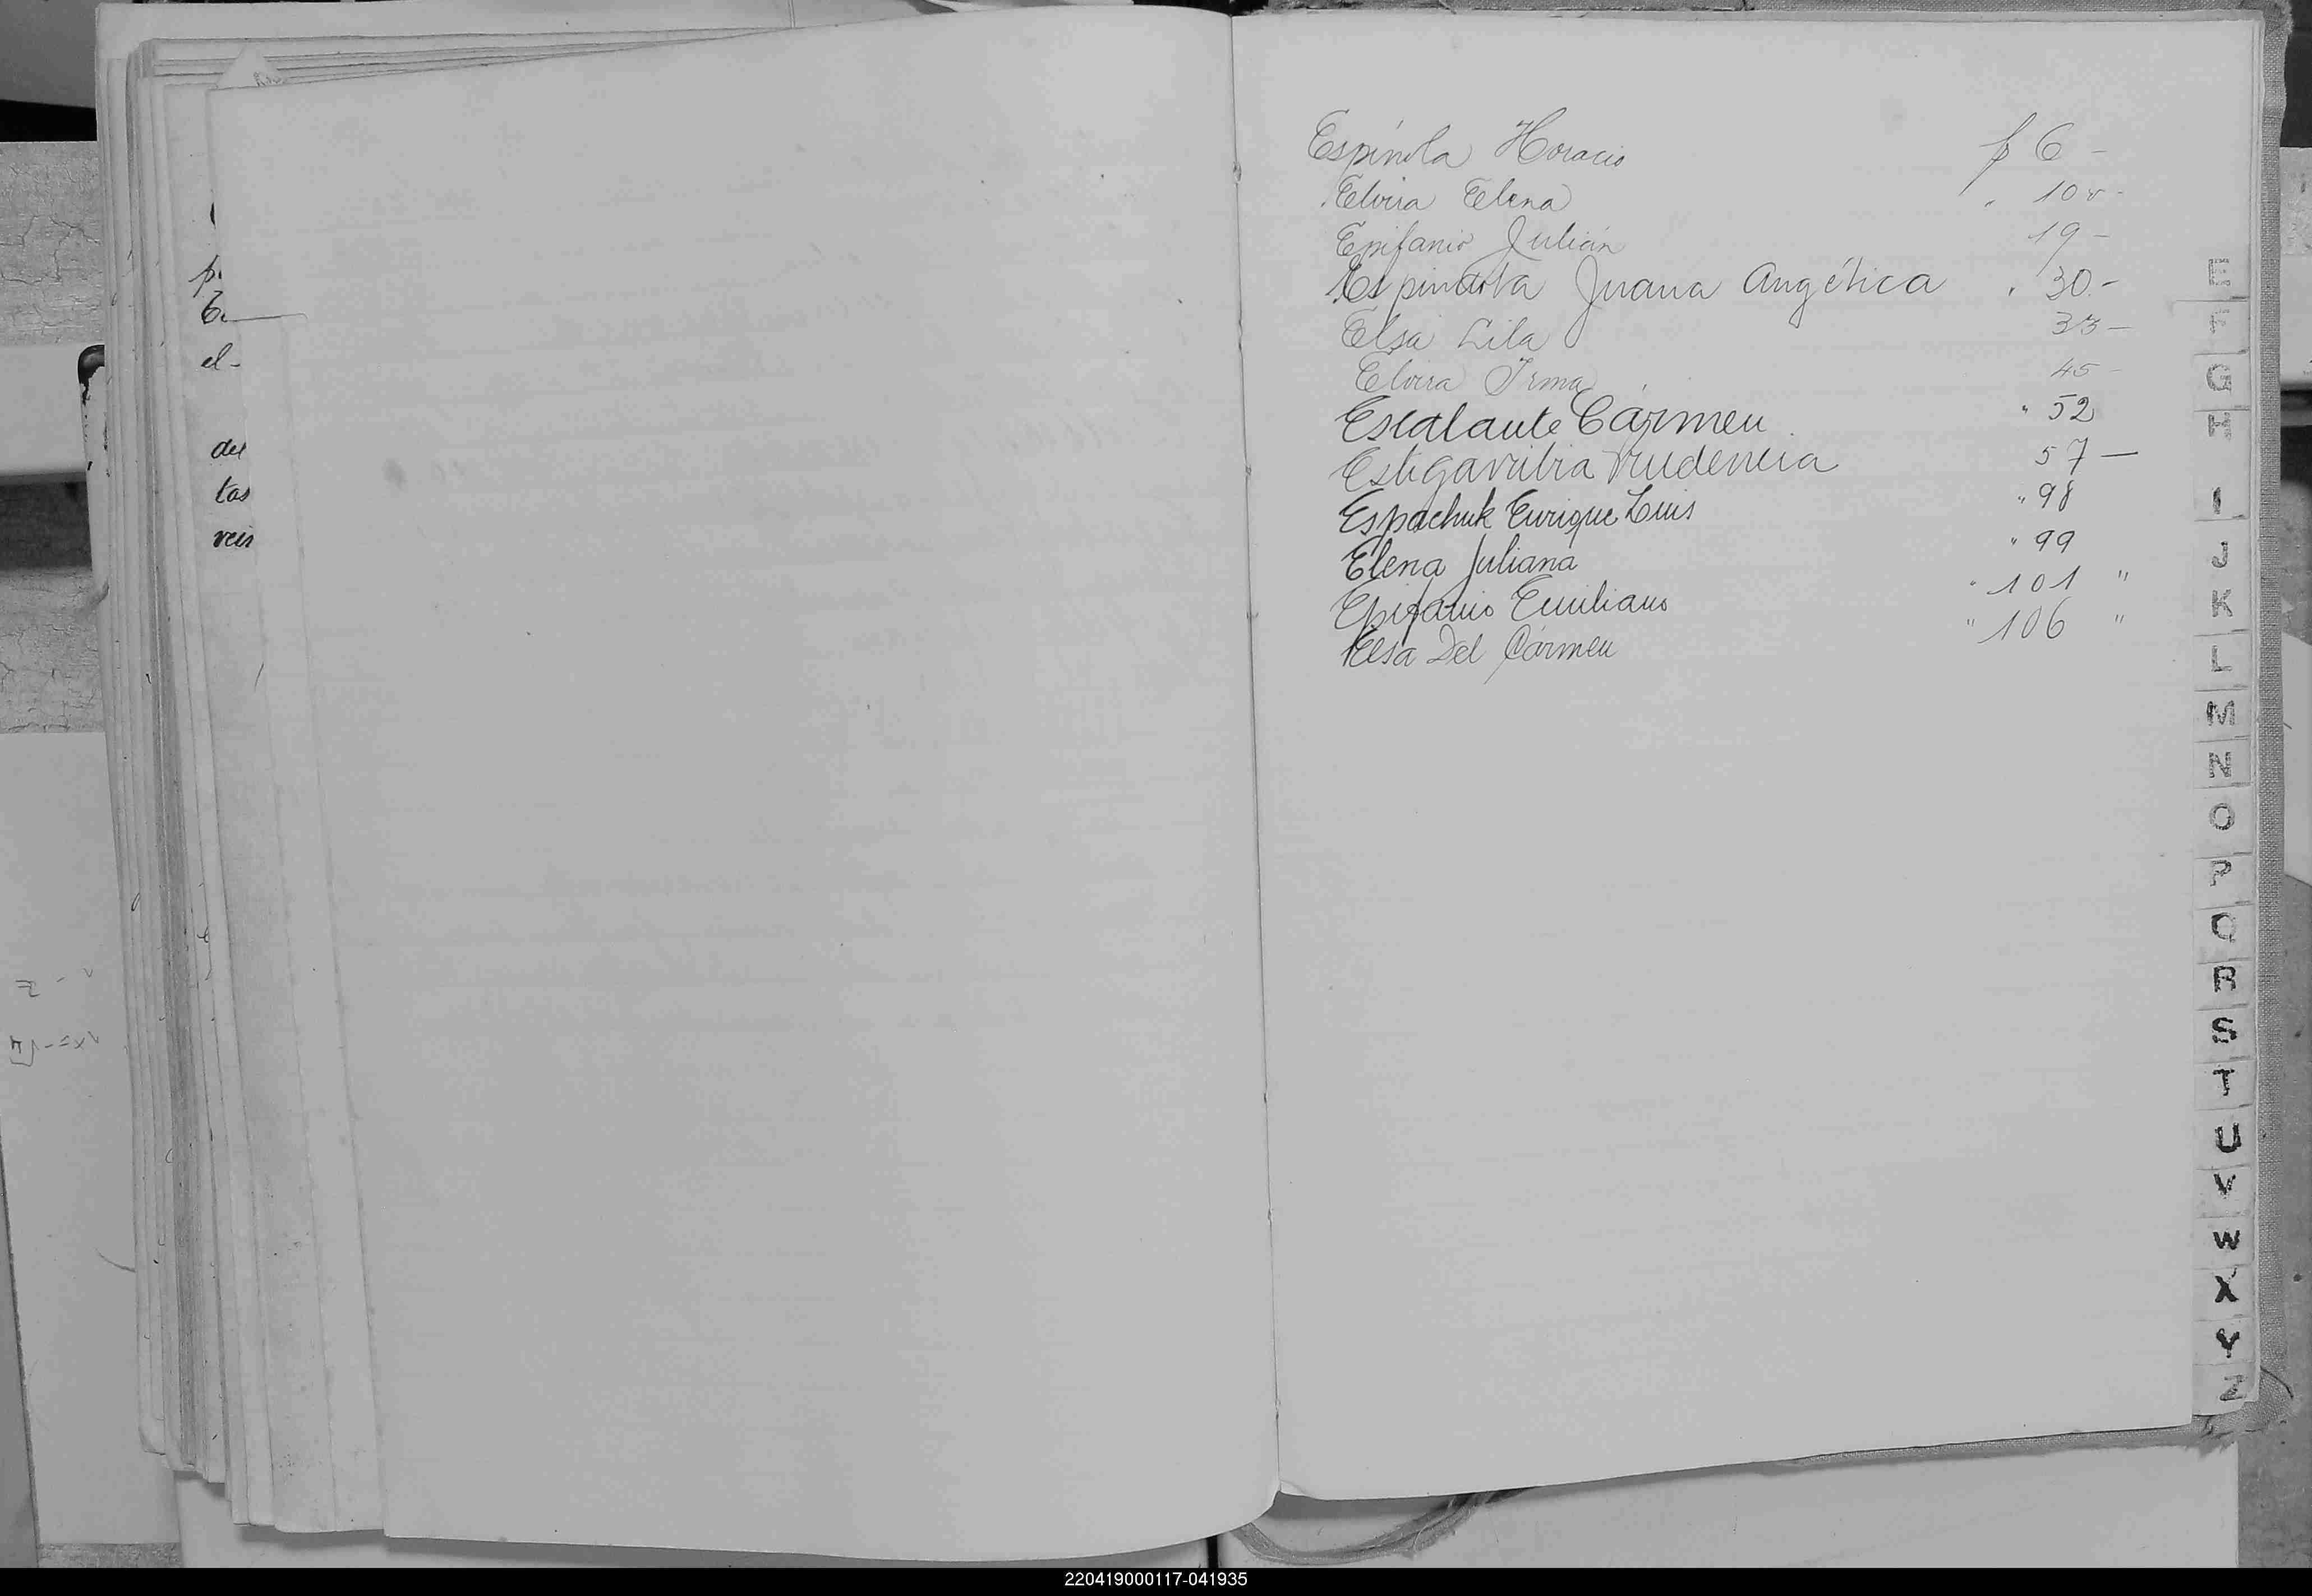 p.
el-
del
tas
veis
Espínola Horacio p 6 -
Elvira Elena " 10 v -
Epifanio Julián 19 -
Espindola Juana Angélica " 30.-
Elsa Lila 33 -
Elvira Irma 45 -
Escalante Carmen " 52
Estigarribia Prudencia 57 -
Espachuk Enrique Luis " 98
Elena Juliana " 99
Epifanio Emiliano " 101 "
Elsa Del Cármen " 106 "
E
F
G
H
I
J
K
L
M
N
O
P
Q
R
S
T
U
V
W
X
Y
Z
220419000117-041935